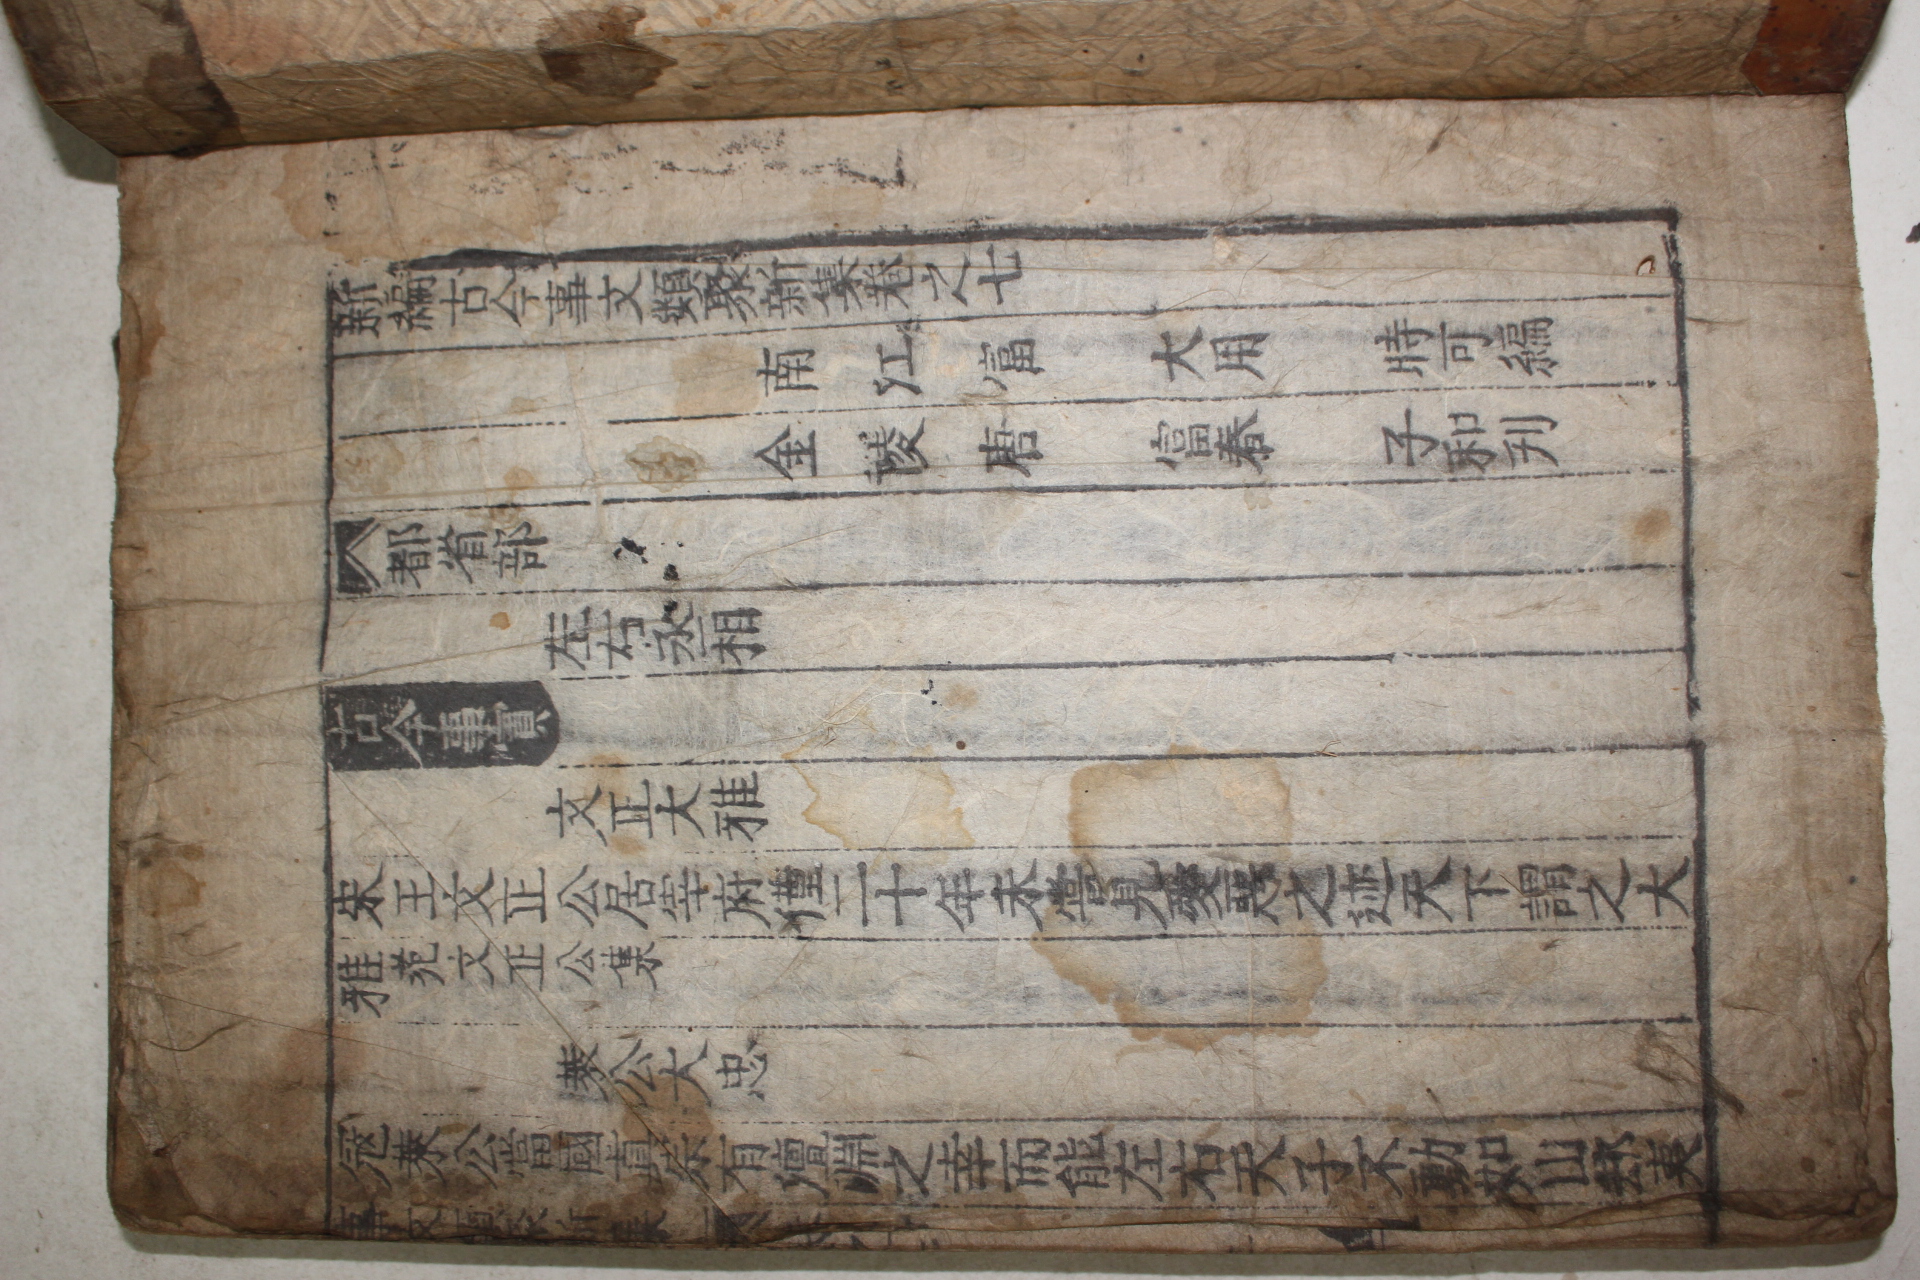 新編古今事文類聚新集卷之七
南江富大用時可編
金陵唐富春子和刋
都省部
左右丞相
古今事實
文正大雅
宋王文正公居宰府僅二十年未嘗見愛惡之迹天下謂之大
雅范文正公集
萊公大忠
冦萊公當國真宗有澶淵之幸而能左右天子不動如山却夷